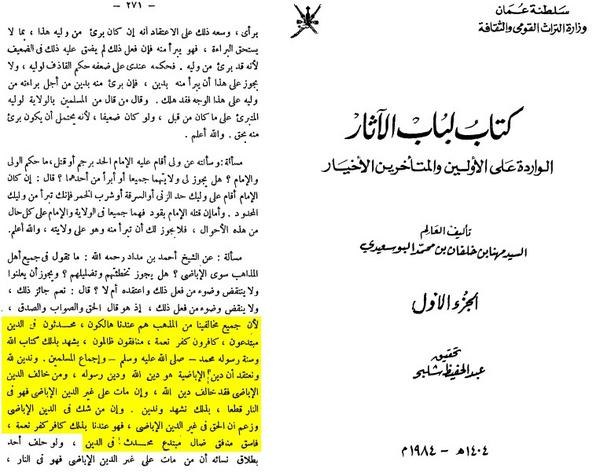 — ٢٧١ —
برأى ، وسعه ذلك على الاعتقاد أنه إن كان برئ من وليه هذا ، بما لا
يستحق البراءة ، فهو يبرأ منه فإن فعل ذلك لم يضق عليه ذلك فى الضعيف
لأنه قد برئ من وليه . فحكمه عندى على ضعفه حكم القاذف لوليه ، ولا
يجوز على هذا أن يبرأ منه بدين ، فإن برئ منه بدين من أجل براءته من
وليه على هذا الوجه فقد هلك . وقال من قال من المسلمين بالولاية لوليه
المتبرئ على ما كان من قبل ، ولو كان ضعيفا ، لأنه يحتمل أن يكون برئ
منه بحق . والله أعلم .
مسألة : وسألته عن ولى أقام عليه الإمام الحد برجم أو قتل، ما حكم الولى
والإمام ؟ هل يجوز لى ولايتهما جميعا أو أبرأ من أحدهما ؟ قال : إن كان
الإمام أقام على وليك حد الزنى أو السرقة أو شرب الخمر فإنك تبرأ من وليك
المحدود . وأما إن قتله الإمام يقود فهما جميعا فى الولاية والإمام على كل حال
من هذه الأحوال ، فلا يجوز لك أن تبرأ منه وهو على ولايته ، والله أعلم.
مسألة : عن الشيخ أحمد بن مداد رحمه الله : ما تقول فى جميع أهل
المذاهب سوى الإباضى ؟ هل يجوز تخطئتهم وتضليلهم ؟ ويجوز أن يعلنوا
ولا ينتقض وضوء من فعل ذلك واعتقده أم لا ؟ قال : نعم جائز ذلك ،
ولا ينتقض وضوء من فعل ذلك ، إذ هو قال الحق والصواب والصدق ،
لأن جميع مخالفينا من المذهب هم عندنا هالكون ، محدثون فى الدين
مبتدعون ، كافرون كفر نعمة ، منافقون ظالمون ، يشهد بذلك كتاب الله
وسنة رسوله محمد — صلى الله عليه وسلم — وإجماع المسلمين . وندين لله
ونعتقد أن دين الإباضية هو دين الله ودين رسوله ، ومن خالف الدين
الإباضى فقد خالف دين الله ، وإن مات على غير الدين الإباضى فهو فى
النار قطعا ، بذلك نشهد وندين . وإن من شك فى الدين الإباضى
وزعم أن الحق فى غير الدين الإباضى ، فهو عندنا بذلك كافر كفر نعمة ،
فاسق منافق ضال مبتدع محدث فى الدين ، ولو حلف أحد
بطلاق نسائه أن من مات على غير الدين الإباضى فهو فى النار ،
سلطنة عمان
وزارة التراث القومى والثقافة
كتاب لباب الآثار
الواردة على الأولين والمتأخرين الأخيار
تأليف العالم
السيد مهنا بن خلفان بن محمد البوسعيدى
الجزء الأول
تحقيق
عبد الحفيظ شلبى
١٤٠٤هـ - ١٩٨٤م